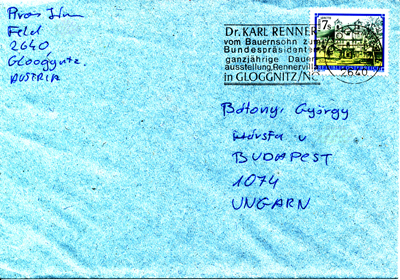 Piros Irm
Feld
2640
Glooggnitz
AUSTRIA
Dr. KARL RENNER
vom Bauernsohn zum
Bundespräsidenten
ganzjährige Dauer
ausstellung, Rennervilla
in GLOGGNITZ/NÖ
7S
REPUBLIK ÖSTERREICH
2640
Botonyi György
u
BUDAPEST
1074
UNGARN